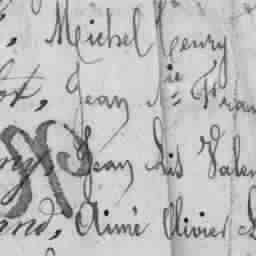 Michel Henry
Jean Mie Fran
Jean Lis Valen
and, Aimé Olivier L